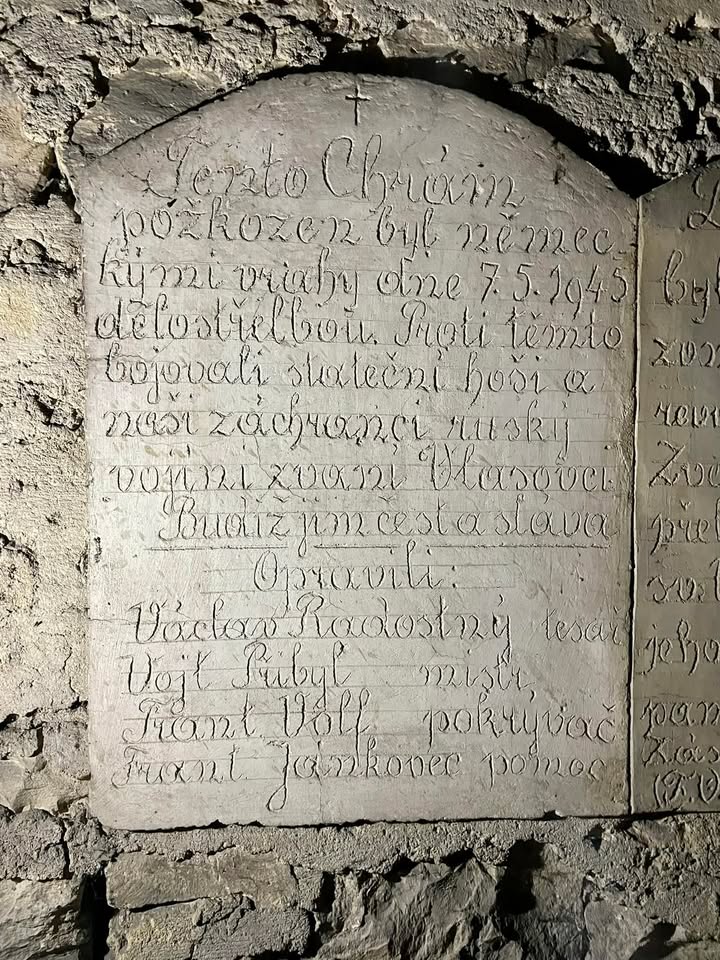 Tento Chrám
požkozen byl němec
kými vrahy dne 7.5.1945
dělostřelbou. Proti těmto
bojovali stateční hoši a
naši záchranci ruský
vojíni zvaní Vlasovci
Budiž jim čest a sláva
Opravili:
Václav Radostný tesař
Vojt Přibyl mistr,
Frant Volf pokrývač
Frant Jankovec pomoc